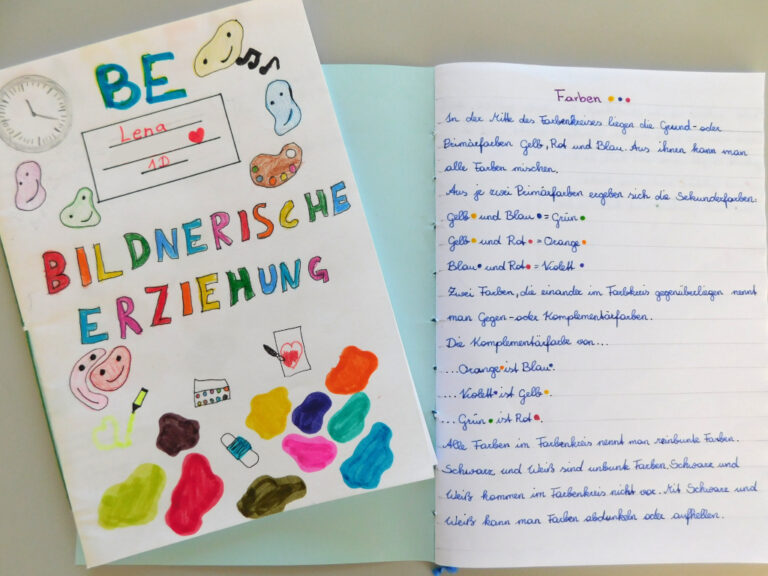 BE
Lena
1D
BILDNERISCHE
ERZIEHUNG
Farben
In der Mitte des Farbenkreises liegen die Grund- oder
Primärfarben Gelb, Rot und Blau. Aus ihnen kann man
alle Farben mischen.
Aus je zwei Primärfarben ergeben sich die Sekunderfarben:
Gelb und Blau = Grün
Gelb und Rot = Orange
Blau und Rot = Violett
Zwei Farben, die einander im Farbkreis gegenüberliegen nennt
man Gegen- oder Komplementärfarben.
Die Komplementärfarbe von...
...Orange ist Blau.
...Violett ist Gelb.
...Grün ist Rot.
Alle Farben im Farbenkreis nennt man reinbunte Farben.
Schwarz und Weiß sind unbunte Farben. Schwarz und
Weiß kommen im Farbenkreis nicht vor. Mit Schwarz und
Weiß kann man Farben abdunkeln oder aufhellen.